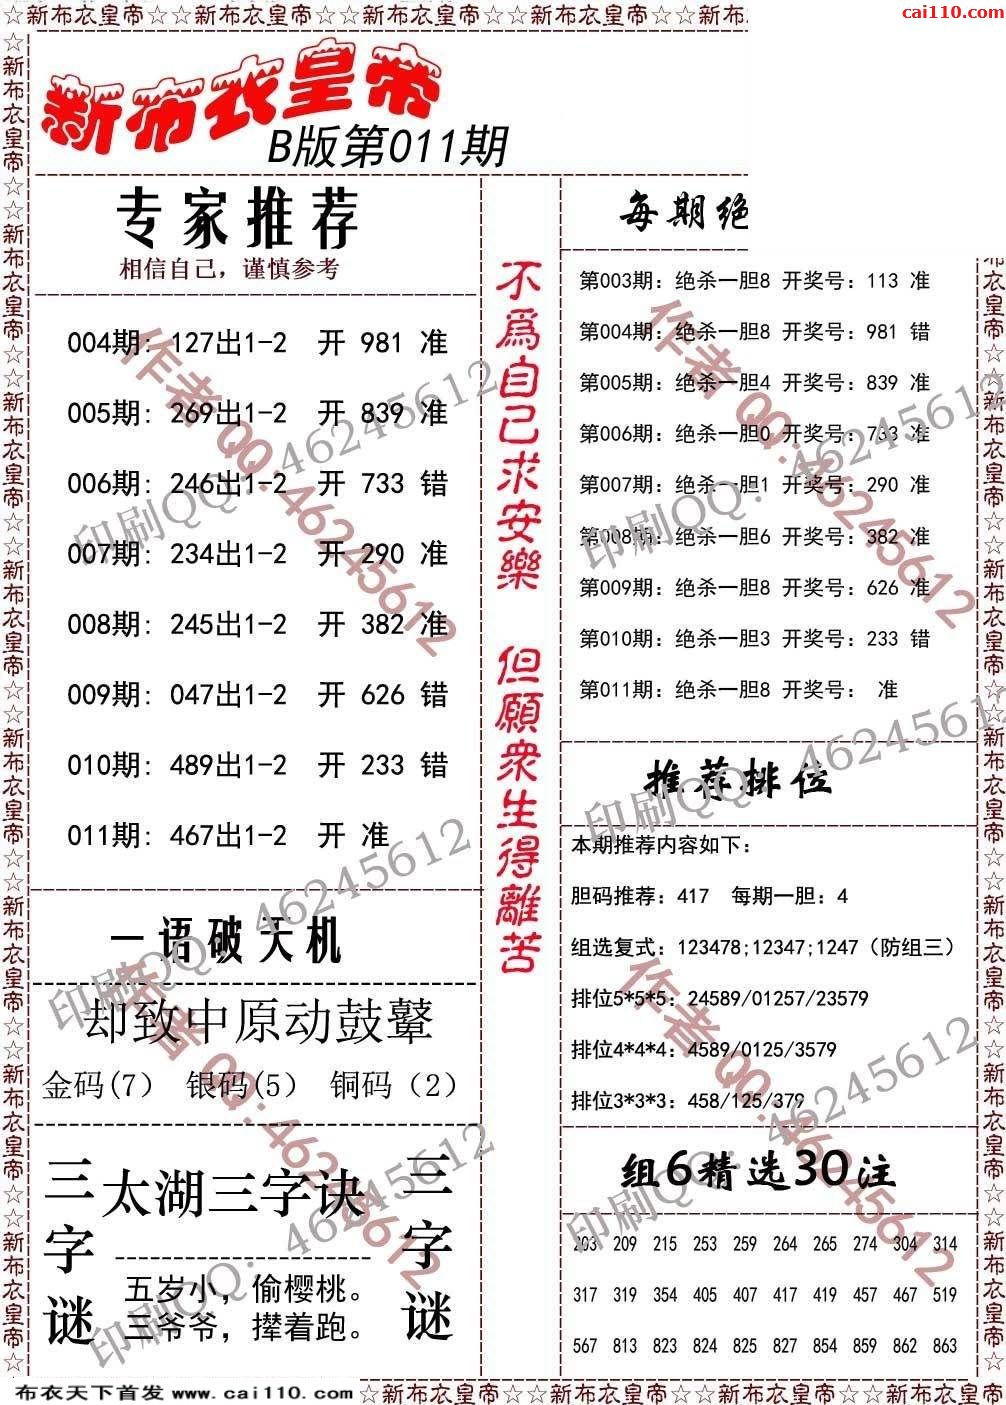 ☆新布衣皇帝☆☆新布衣皇帝☆☆新布衣皇帝☆☆新布衣皇帝☆☆新布
cai110.com
新布衣皇帝
B版第011期
专家推荐
相信自己，谨慎参考
004期: 127出1-2 开 981 准
005期: 269出1-2 开 839 准
006期: 246出1-2 开 733 错
007期: 234出1-2 开 290 准
008期: 245出1-2 开 382 准
009期: 047出1-2 开 626 错
010期: 489出1-2 开 233 错
011期: 467出1-2 开 准
一语破天机
却致中原动鼓鼙
金码(7) 银码(5) 铜码（2）
三字谜
太湖三字诀
五岁小，偷樱桃。
三爷爷，撵着跑。
三字谜
不為自己求安樂 但願衆生得離苦
每期绝
第003期: 绝杀一胆8 开奖号: 113 准
第004期: 绝杀一胆8 开奖号: 981 错
第005期: 绝杀一胆4 开奖号: 839 准
第006期: 绝杀一胆0 开奖号: 733 准
第007期: 绝杀一胆1 开奖号: 290 准
第008期: 绝杀一胆6 开奖号: 382 准
第009期: 绝杀一胆8 开奖号: 626 准
第010期: 绝杀一胆3 开奖号: 233 错
第011期: 绝杀一胆8 开奖号: 准
推荐排位
本期推荐内容如下:
胆码推荐: 417 每期一胆: 4
组选复式: 123478;12347;1247（防组三）
排位5*5*5: 24589/01257/23579
排位4*4*4: 4589/0125/3579
排位3*3*3: 458/125/379
组6精选30注
203 209 215 253 259 264 265 274 304 314
317 319 354 405 407 417 419 457 467 519
567 813 823 824 825 827 854 859 862 863
作者QQ:46245612
印刷QQ: 46245612
作者QQ:46245612
印刷QQ: 46245612
印刷QQ: 46245612
印刷QQ: 46245612
作者QQ:46245612
作者QQ:46245612
印刷QQ: 46245612
印刷QQ: 46245612
布衣天下首发 www.cai110.com
☆新布衣皇帝☆☆新布衣皇帝☆☆新布衣皇帝☆☆新布衣皇帝☆